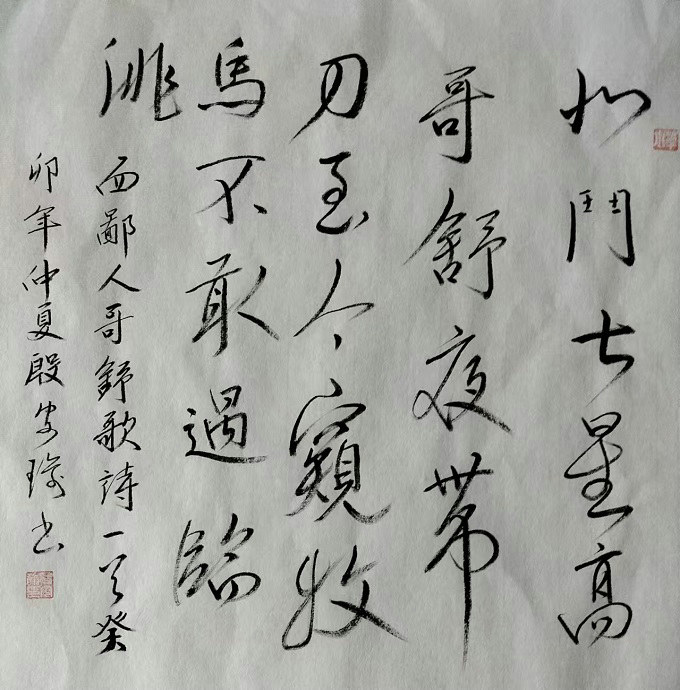 北鬥七星高
哥舒夜帶
刀至今窺牧
馬不敢過臨
洮
西鄙人哥舒歌詩一首癸
卯年仲夏殷安珍書